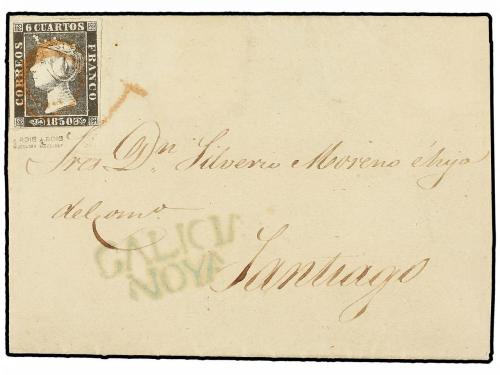 6 CUARTOS
CORREOS
FRANCO
1850
Sres Dn Silverio Moreno é hijo
del com.o
GALICIA
NOYA
Santiago